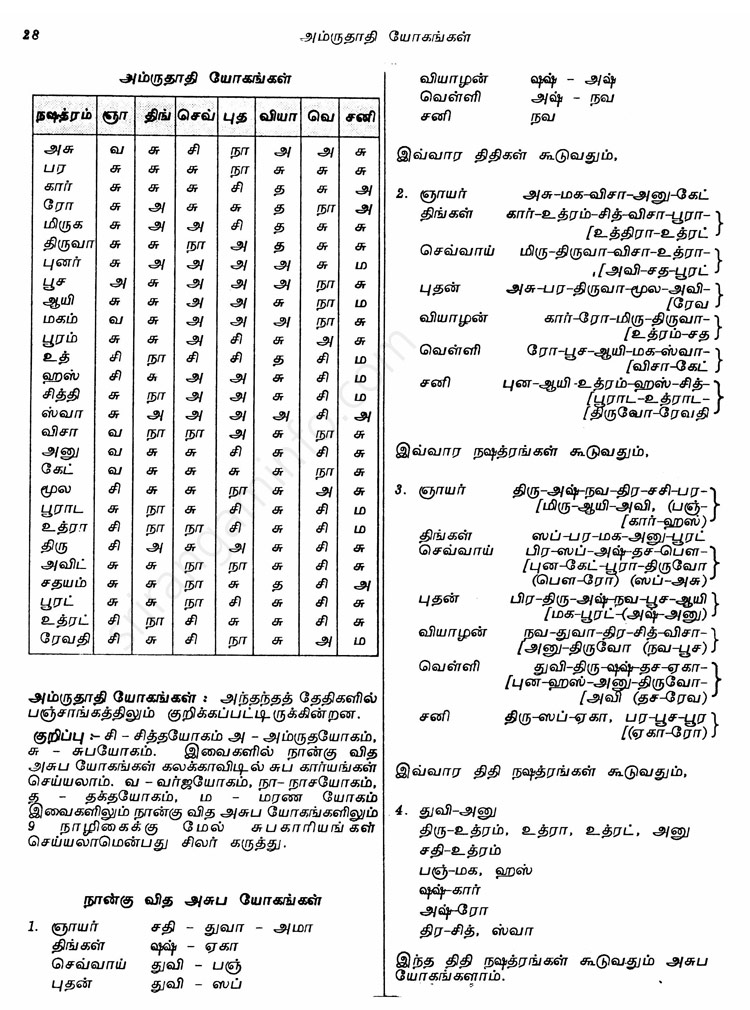 28
அம்ருதாதி யோகங்கள்
அம்ருதாதி யோகங்கள்
நஷத்ரம் ஞா திங் செவ் புத வியா வெ சனி
அசு வ சு சி நா அ அ சு
பர சு சு சு நா சு சு சு
கார் சு சு சு சி த சு அ
ரோ சு அ சு சு த நா அ
மிருக சு அ அ சி த சு சு
திருவா சு சு நா அ த சு சு
புனர் சு அ அ அ அ சு ம
பூச அ சு அ அ அ நா சு
ஆயி சு சு அ அ சு நா ம
மகம் வ சு அ அ அ நா சு
பூரம் சு சு அ சி சு அ சு
உத் சி நா சி சி த சி ம
ஹஸ் சி சு அ அ சு சி ம
சித்தி சு நா அ அ சு சி ம
ஸ்வா சு அ அ அ அ சி அ
விசா வ நா நா அ சு நா சு
அனு வ சு சு சி சு சி சு
கேட் வ சு சு சு சு நா சு
மூல சி சு சு நா சு அ சு
பூராட சி நா சு சி சு சி ம
உத்ரா சி நா நா சி சு சி ம
திரு சி அ சு அ சு சி சு
அவிட் சி சு நா நா சு சி சு
சதயம் சு சு நா சு த சி அ
பூரட் சு சு நா சி சு சி சு
உத்ரட் சி நா சி சி சு சி சு
ரேவதி சி சு சி நா சு அ ம
அம்ருதாதி யோகங்கள் : அந்தந்தத் தேதிகளில்
பஞ்சாங்கத்திலும் குறிக்கப்பட்டிருக்கின்றன.
குறிப்பு :- சி - சித்தயோகம் அ - அம்ருதயோகம்,
சு - சுபயோகம். இவைகளில் நான்கு வித
அசுப யோகங்கள் கலக்காவிடில் சுப கார்யங்கள்
செய்யலாம். வ - வர்ஜயோகம், நா- நாசயோகம்,
த - தக்தயோகம், ம - மரண யோகம்
இவைகளிலும் நான்கு வித அசுப யோகங்களிலும்
9 நாழிகைக்கு மேல் சுபகாரியங்கள்
செய்யலாமென்பது சிலர் கருத்து.
நான்கு வித அசுப யோகங்கள்
1. ஞாயர் சதி - துவா - அமா
திங்கள் ஷஷ் - ஏகா
செவ்வாய் துவி - பஞ்
புதன் துவி - ஸப்
வியாழன் ஷஷ் - அஷ்
வெள்ளி அஷ் - நவ
சனி நவ
இவ்வார திதிகள் கூடுவதும்,
2. ஞாயர் அசு-மக-விசா-அனு-கேட்
திங்கள் கார்-உத்ரம்-சித்-விசா-பூரா-
[உத்திரா-உத்ரட்
செவ்வாய் மிரு-திருவா-விசா-உத்ரா-
[அவி-சத-பூரட்
புதன் அசு-பர-திருவா-மூல-அவி-
[ரேவ
வியாழன் கார்-ரோ-மிரு-திருவா-
[உத்ரம்-சத
வெள்ளி ரோ-பூச-ஆயி-மக-ஸ்வா-
[விசா-கேட்
சனி புன-ஆயி-உத்ரம்-ஹஸ்-சித்-
[பூராட-உத்ராட-
[திருவோ-ரேவதி
இவ்வார நஷத்ரங்கள் கூடுவதும்,
3. ஞாயர் திரு-அஷ்-நவ-திர-சசி-பர-
[மிரு-ஆயி-அவி, (பஞ்-
[கார்-ஹஸ்)
திங்கள் ஸப்-பர-மக-அனு-பூரட்
செவ்வாய் பிர-ஸப்-அஷ்-தச-பௌ-
[புன-கேட்-பூரா-திருவோ
(பௌ-ரோ) (ஸப்-அசு)
புதன் பிர-திரு-அஷ்-நவ-பூச-ஆயி
[மக-பூரட்-(அஷ்-அனு)
வியாழன் நவ-துவா-திர-சித்-விசா-
[அனு-திருவோ (நவ-பூச)
வெள்ளி துவி-திரு-ஷஷ்-தச-ஏகா-
[புன-ஹஸ்-அனு-திருவோ-
[அவி (தச-ரேவ)
சனி திரு-ஸப்-ஏகா, பர-பூச-பூர
[(ஏகா-ரோ)
இவ்வார திதி நஷத்ரங்கள் கூடுவதும்,
4. துவி-அனு
திரு-உத்ரம், உத்ரா, உத்ரட், அனு
சதி-உத்ரம்
பஞ்-மக, ஹஸ்
ஷஷ்-கார்
அஷ்-ரோ
திர-சித், ஸ்வா
இந்த திதி நஷத்ரங்கள் கூடுவதும் அசுப
யோகங்களாம்.
srirangaminfo.com